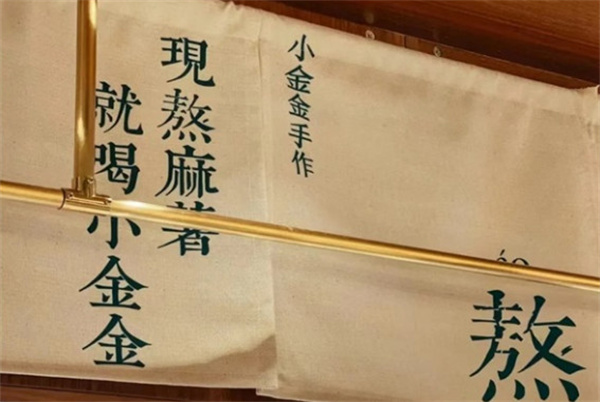 áo
熬
小金金手作
現熬麻薯
就喝小金金